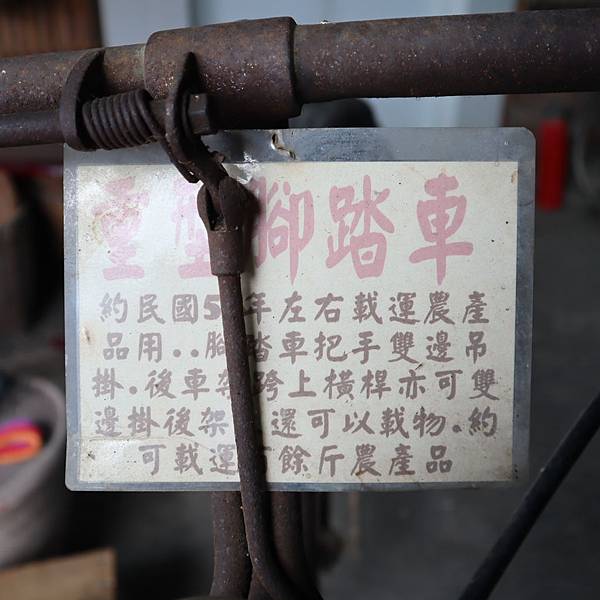 重型腳踏車
約民國5年左右載運農產
品用..腳踏車把手雙邊吊
掛.後車架跨上橫桿亦可雙
邊掛後架還可以載物.約
可載運餘斤農產品